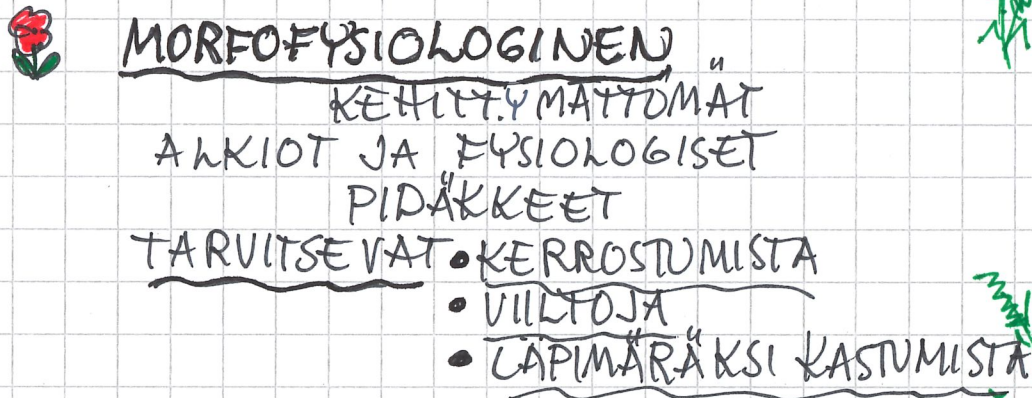 MORFOFYSIOLOGINEN
KEHITTYMÄTTÖMÄT
ALKIOT JA FYSIOLOGISET
PIDÄKKEET
TARVITSEVAT • KERROSTUMISTA
• VIILTOJA
• LÄPIMÄRÄKSI KASTUMISTA